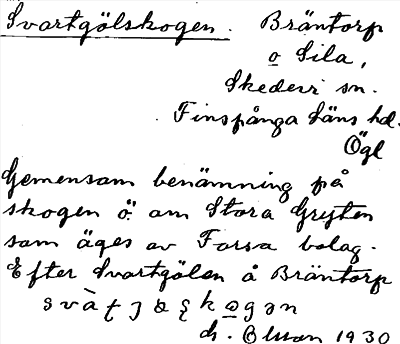 Svartgölskogen. Bräntorp
o Sila,
Skedevi sn.
Finspånga läns hd.
Ögl
Gemensam benämning på
skogen ö. om Stora Gryten
som äges av Forsa bolag.
Efter Svartgölen å Bräntorp
1930